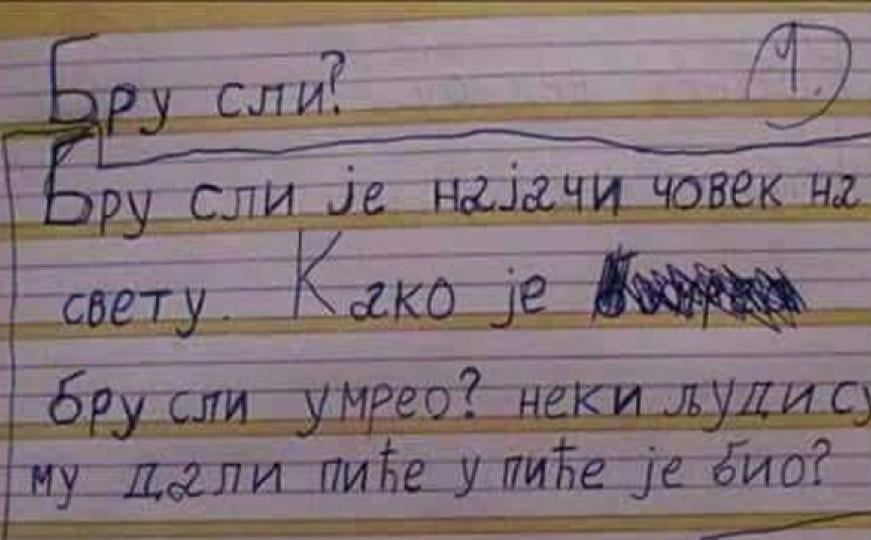 Бру сли? 1.
Бру сли је најачи човек на
свету. Како је
бру сли умрео? неки људи су
му дали пиће у пиће је био?